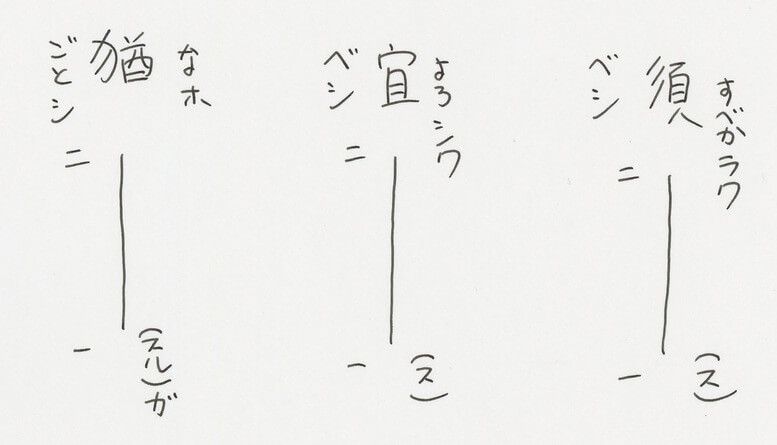 須
すべかラク
(ス)
ベシ
二
一
宜
よろシク
(ス)
ベシ
二
一
猶
なホ
(スル)ガ
ごとシ
二
一